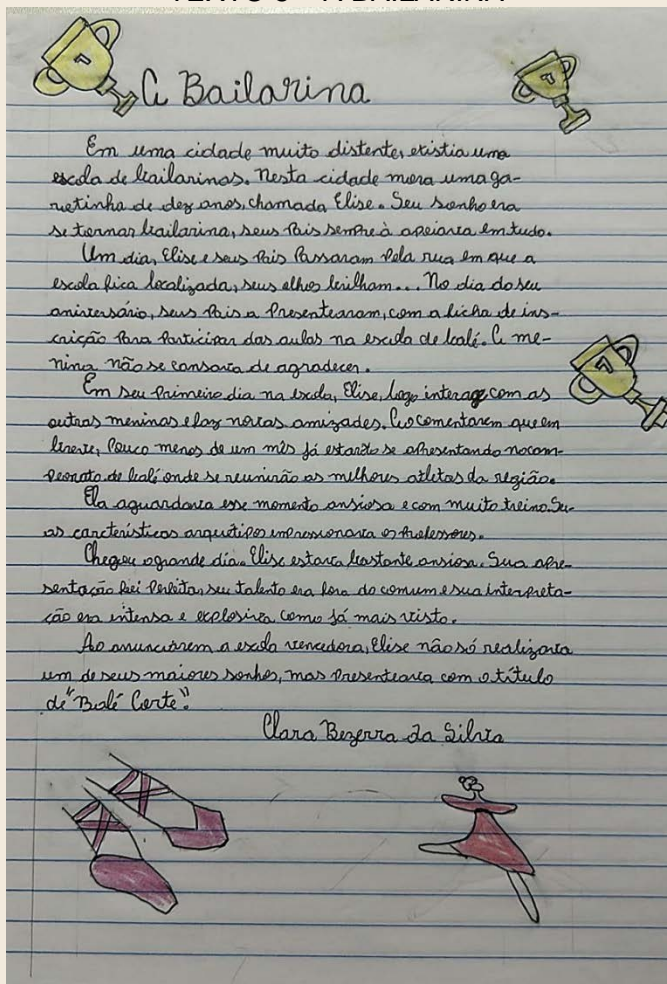 A Bailarina
Em uma cidade muito distente, existia uma
escola de bailarinas. Nesta cidade mora uma ga-
rotinha de dez anos, chamada Elise. Seu sonho era
se tornar bailarina, seus Pais sempre à apoiava em tudo.
Um dia, Elise e seus Pais Passaram Pela rua em que a
escola fica localizada, seus olhos brilham... No dia do seu
aniversário, seus Pais a Presentearam, com a ficha de ins-
crição Para Participar das aulas na escola de balé. A me-
nina não se cansava de agradecer.
Em seu Primeiro dia na escola, Elise, logo interage com as
outras meninas e faz novas amizades. Ao comentarem que em
breve, Pouco menos de um mês já estarão se apresentando no cam-
Peonato de balé onde se reunirão as melhores atletas da região.
Ela aguardava esse momento ansiosa e com muito treino. Su-
as carcterísticas arquétipos impressionava os Professores.
Chegou o grande dia. Elise estava bastante ansiosa. Sua apre-
sentação foi Perfeita, seu talento era fora do comum e sua interpreta-
ção era intensa e explosiva como já mais visto.
Ao anunciarem a escola vencedora, Elise não só realizava
um de seus maiores sonhos, mas Presenteava com o título
de "Balé Corte".
Clara Bezerra da Silva